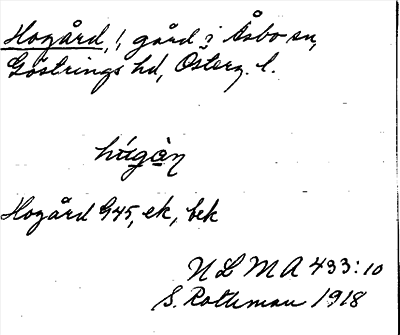 Hogård, !, gård i Åsbo sn,
Göstrings hd, Österg. l.
húgàn
Hogård G45, ek, bek
ULMA 433:10
S. Rothman 1918